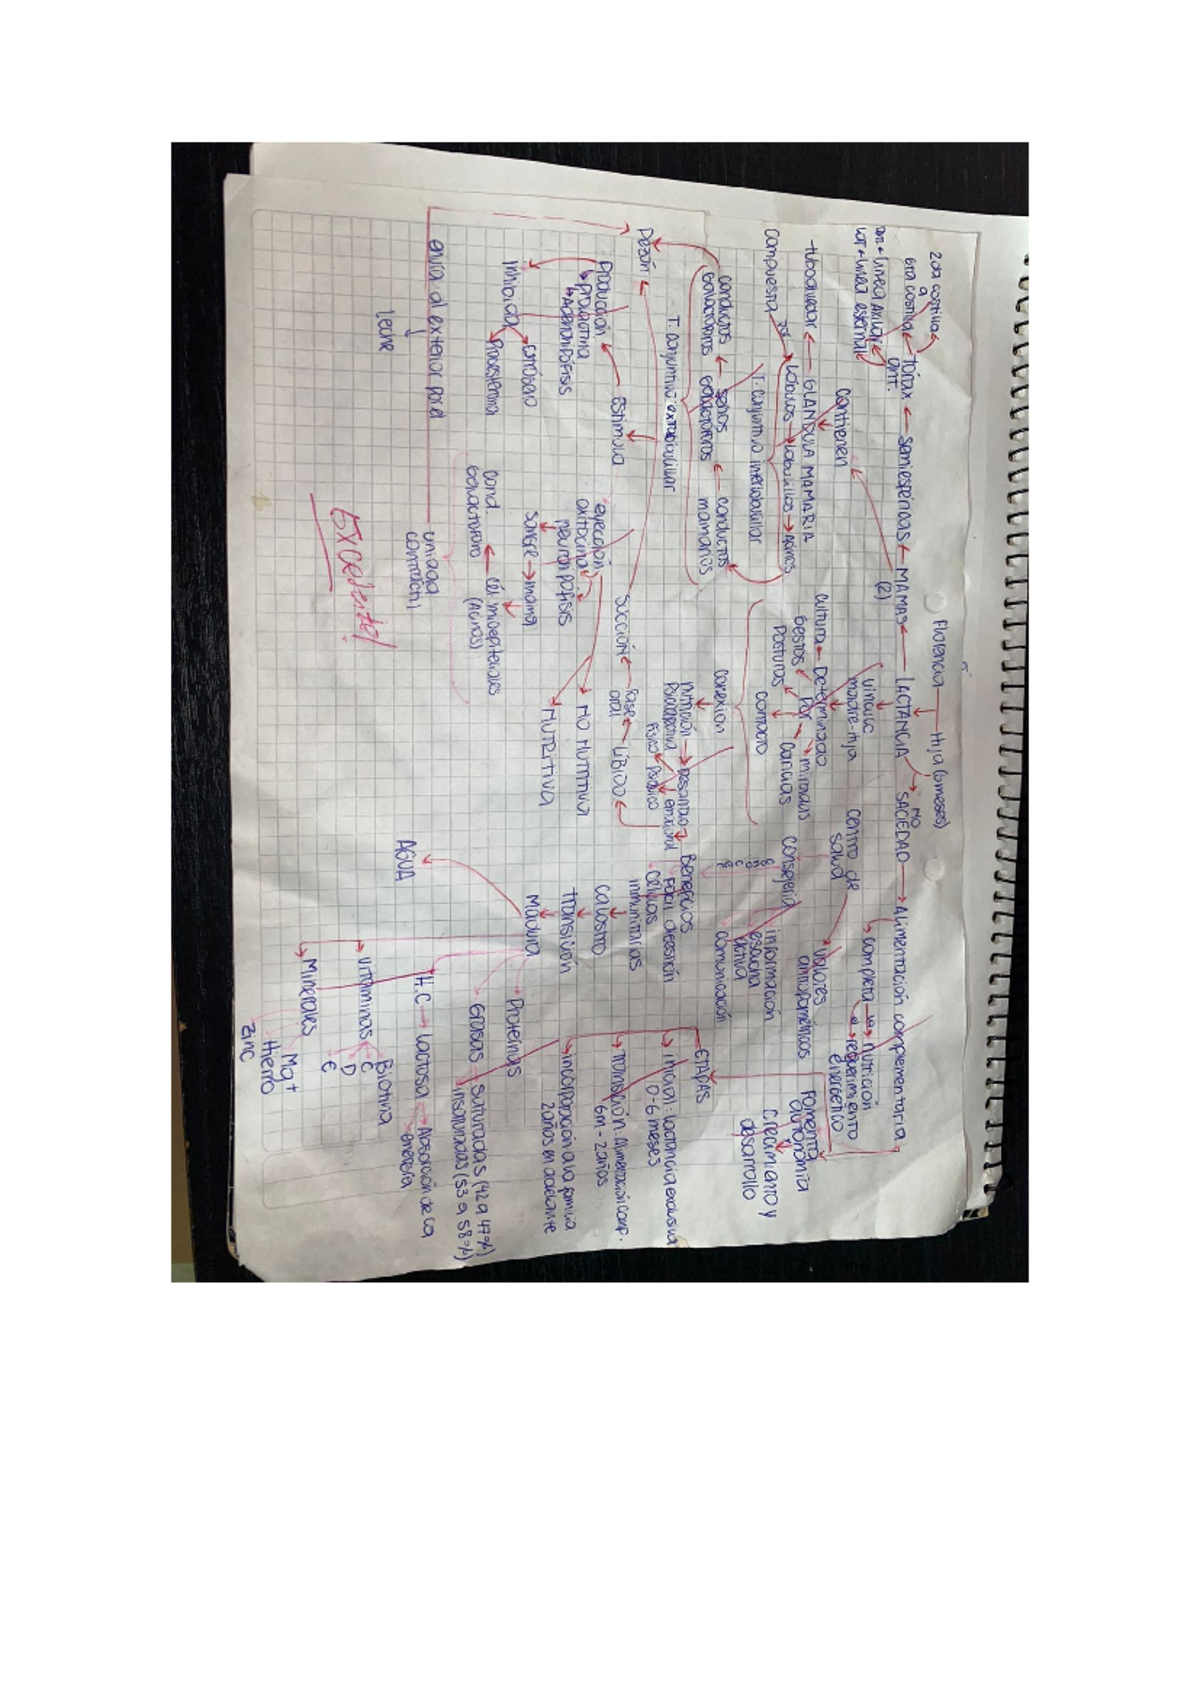 Florencia Hija (6 meses)
2da costilla
a
6ta costilla
TÓRAX
Semiesféricas
MAMAS
(2)
LACTANCIA
NO
SACIEDAD
Alimentación complementaria
ant.
Lat + línea esternal
contienen
vínculo
madre-hija
centro de
salud
completa
nutrición
requerimiento
energético
-tuboalveolar
GLÁNDULA MAMARIA
compuesta
Lóbulos
Lobulillos
Acinos
T. conjuntivo interlobulillar
cultura
Determinado
por
gestos
miradas
posturas
caricias
contacto
valores
antropométricos
consejería
información
escucha
activa
comunicación
Fomenta
autonomía
crecimiento y
desarrollo
conductos
galactóforos
senos
galactóforos
conductos
mamarios
T. conjuntivo extralobulillar
conexión
nutrición
desarrollo
emocional
físico
psíquico
Beneficios
Fácil digestión
células
inmunitarias
ETAPAS
inicial: lactancia exclusiva
0-6 meses
transición: Alimentación comp.
6m - 2 años
incorporación a la familia
2 años en adelante
Pezón
Estimula
succión
fase
oral
LÍBIDO
Producción
Prolactina
Adenohipófisis
eyección
oxitocina
neurohipófisis
sangre
mama
NO NUTRITIVA
NUTRITIVA
calostro
transición
madura
Inhibida
estrógeno
Progesterona
cond.
galactóforo
cél. mioepiteliales
(Acinos)
Proteínas
Grasas
saturadas (42 a 47%)
insaturadas (53 a 58%)
envía al exterior por el
unidad
contráctil
Leche
AGUA
H.C
Lactosa
Absorción de Ca
energía
vitaminas
Biotina
C
D
E
Minerales
Mg+
Hierro
zinc
Excelente!